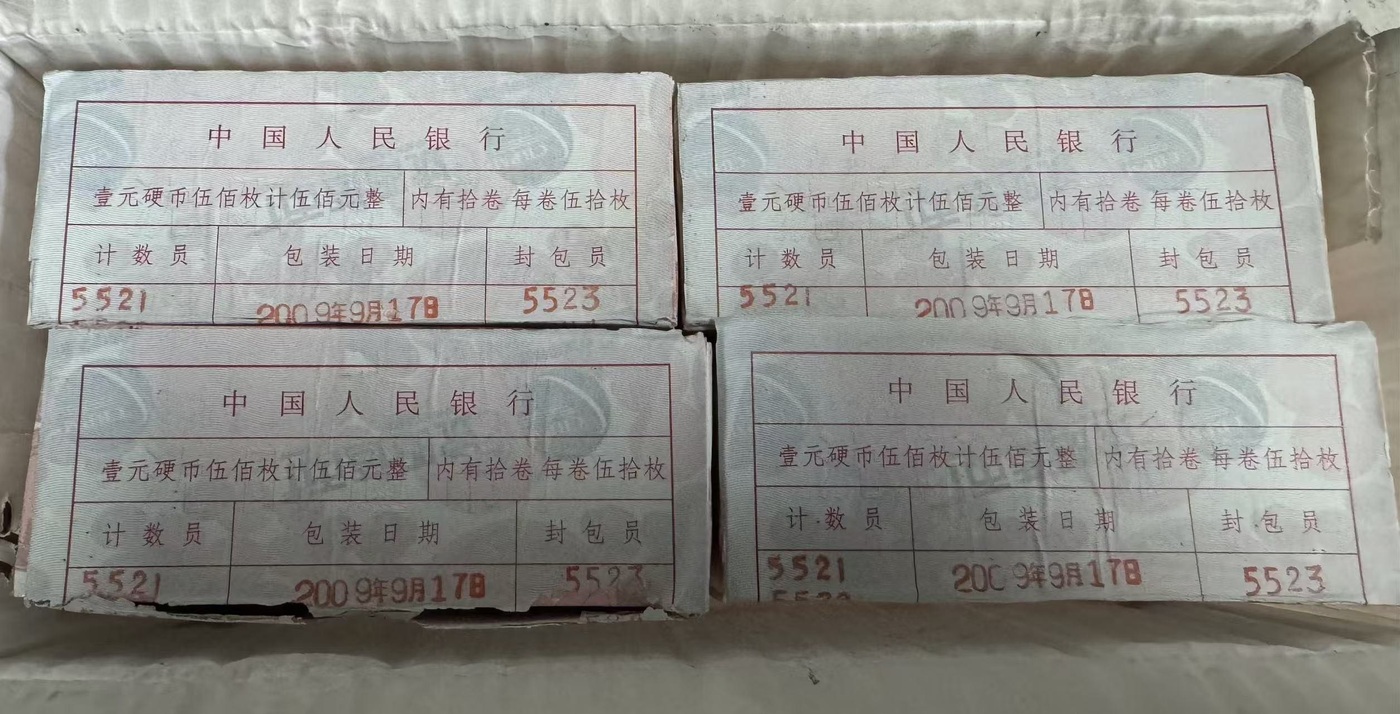 中国人民银行
壹元硬币伍佰枚计伍佰元整 内有拾卷 每卷伍拾枚
计数员 包装日期 封包员
5521 2009年9月17日 5523
中国人民银行
壹元硬币伍佰枚计伍佰元整 内有拾卷 每卷伍拾枚
计数员 包装日期 封包员
5521 2009年9月17日 5523
中国人民银行
壹元硬币伍佰枚计伍佰元整 内有拾卷 每卷伍拾枚
计数员 包装日期 封包员
5521 2009年9月17日 5523
中国人民银行
壹元硬币伍佰枚计伍佰元整 内有拾卷 每卷伍拾枚
计数员 包装日期 封包员
5521 2009年9月17日 5523